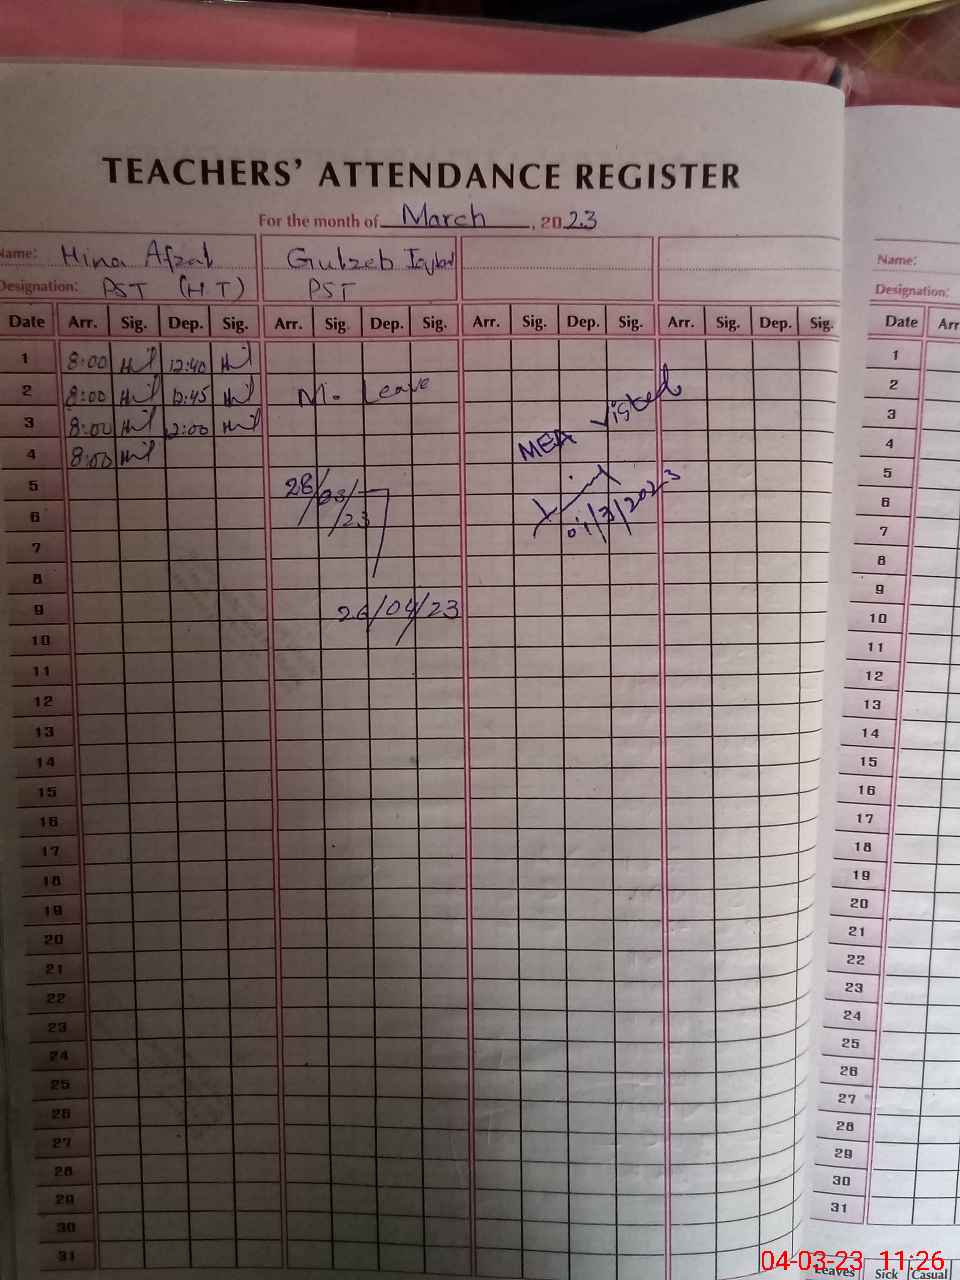 TEACHERS' ATTENDANCE REGISTER
For the month of March, 2023
Name: Hina Afzal Gulzeb Iqbal
Designation: PST (HT) PST
Date Arr. Sig. Dep. Sig. Arr. Sig. Dep. Sig. Arr. Sig. Dep. Sig. Arr. Sig. Dep. Sig.
1 8:00 12:40
2 8:00 12:45 M. Leave
3 8:00 12:00
4 8:00
MEA visted
5 28/03/23
01/3/2023
6
7
8
9 26/04/23
10
11
12
13
14
15
16
17
18
19
20
21
22
23
24
25
26
27
28
29
30
31
Name:
Designation:
Date Arr
1
2
3
4
5
6
7
8
9
10
11
12
13
14
15
16
17
18
19
20
21
22
23
24
25
26
27
28
29
30
31
Leaves Sick Casual
04-03-23 11:26